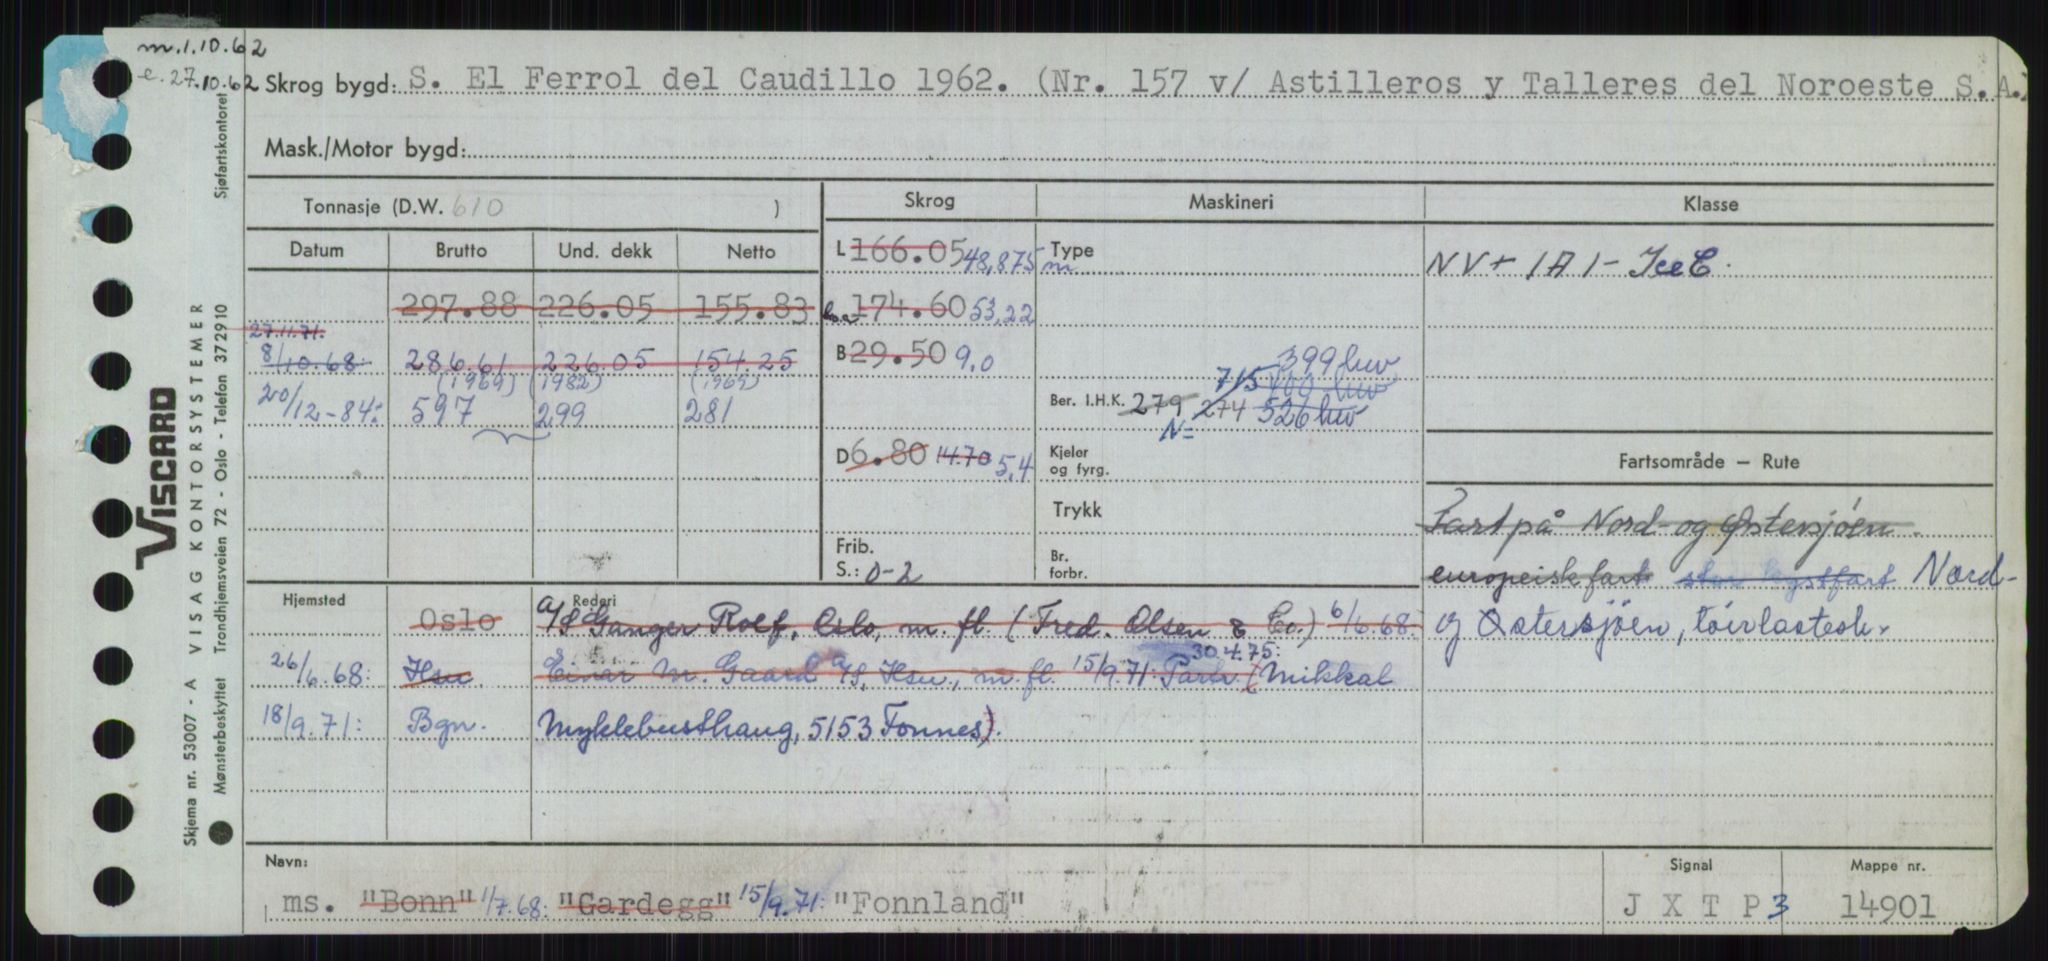 m.1.10.62
e.27.10.62
Skrog bygd: S. El Ferrol del Caudillo 1962. (Nr. 157 v/ Astilleros y Talleres del Noroeste S.A.)
Mask./Motor bygd:
Tonnasje (D.W. 610 )
Skrog Maskineri Klasse
Datum Brutto Und. dekk Netto
L 166.05 48,875 Type m NV + 1A1 - Ice C.
297.88 226.05 155.83 174.60 53,22
27.11.71.
8/10.68: 286.61 226.05 154.25 B 29.50 9.0 399 hw
(1969) (1982) (1969) 715 400 hw
20/12-84: 597 299 281 Ber. I.H.K. 279 274 526 hw
N=
D 6.80 14.70 5,4 Kjeler og fyrg. Fartsområde – Rute
Trykk Fart på Nord- og Østersjøen.
Frib. S.: 0-2 Br. forbr. europeisk fart stor kystfart Nord-
Hjemsted Rederi
Oslo A/S Ganger Rolf, Oslo, m. fl. (Fred. Olsen & Co.) 6/6.68: og Østersjøen, tørrlastesk.
30.4.75:
26/6.68: Hsu Einar M. Gaard A/S, Hsu., m. fl. 15/9.71: Partr. (Mikkal
18/9.71: Bgn. Myklebusthaug, 5153 Fonnes).
Navn: Signal Mappe nr.
ms. "Bonn" 1/7.68: "Gardegg" 15/9.71: "Fonnland" J X T P 3 14901
Skjema nr. 53007 - A VISAG KONTORSYSTEMER
VISCARD
Mønsterbeskyttet Trondhjemsveien 72 - Oslo - Telefon 372910 Sjøfartskontoret